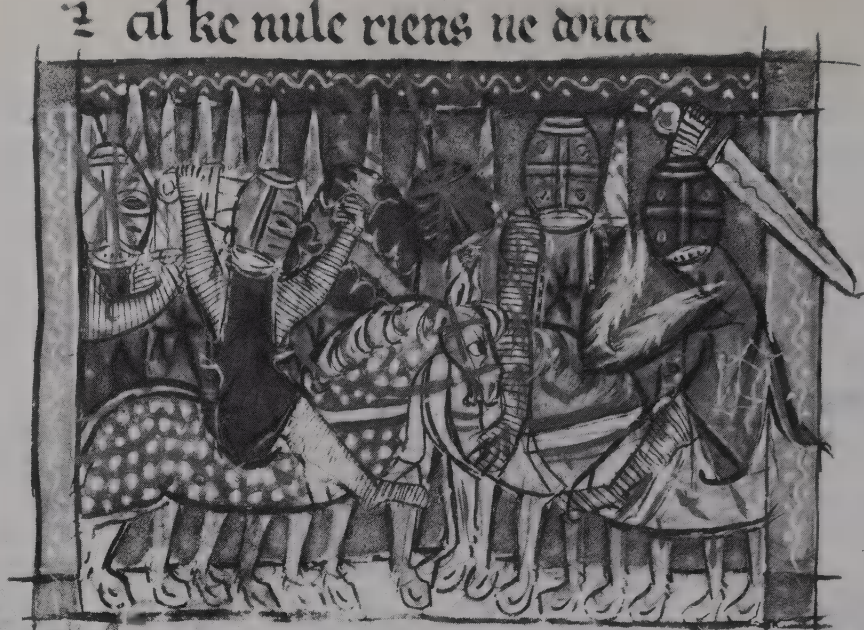 ⁊ cil ke nule riens ne doute